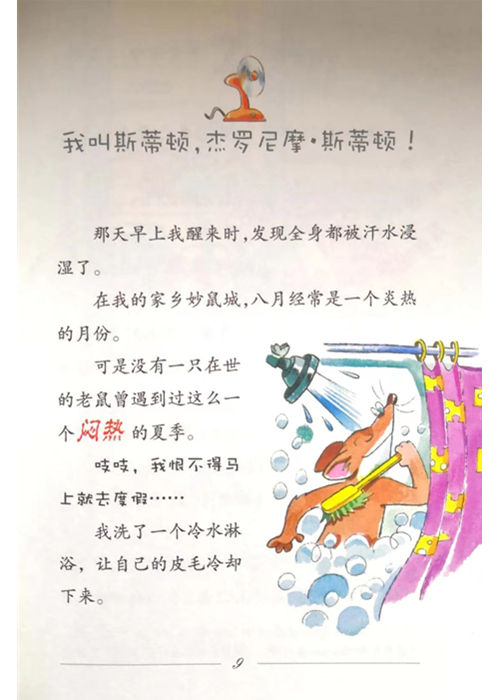 我叫斯蒂顿，杰罗尼摩·斯蒂顿！
那天早上我醒来时，发现全身都被汗水浸
湿了。
在我的家乡妙鼠城，八月经常是一个炎热
的月份。
可是没有一只在世
的老鼠曾遇到过这么一
个闷热的夏季。
吱吱，我恨不得马
上就去度假……
我洗了一个冷水淋
浴，让自己的皮毛冷却
下来。
9